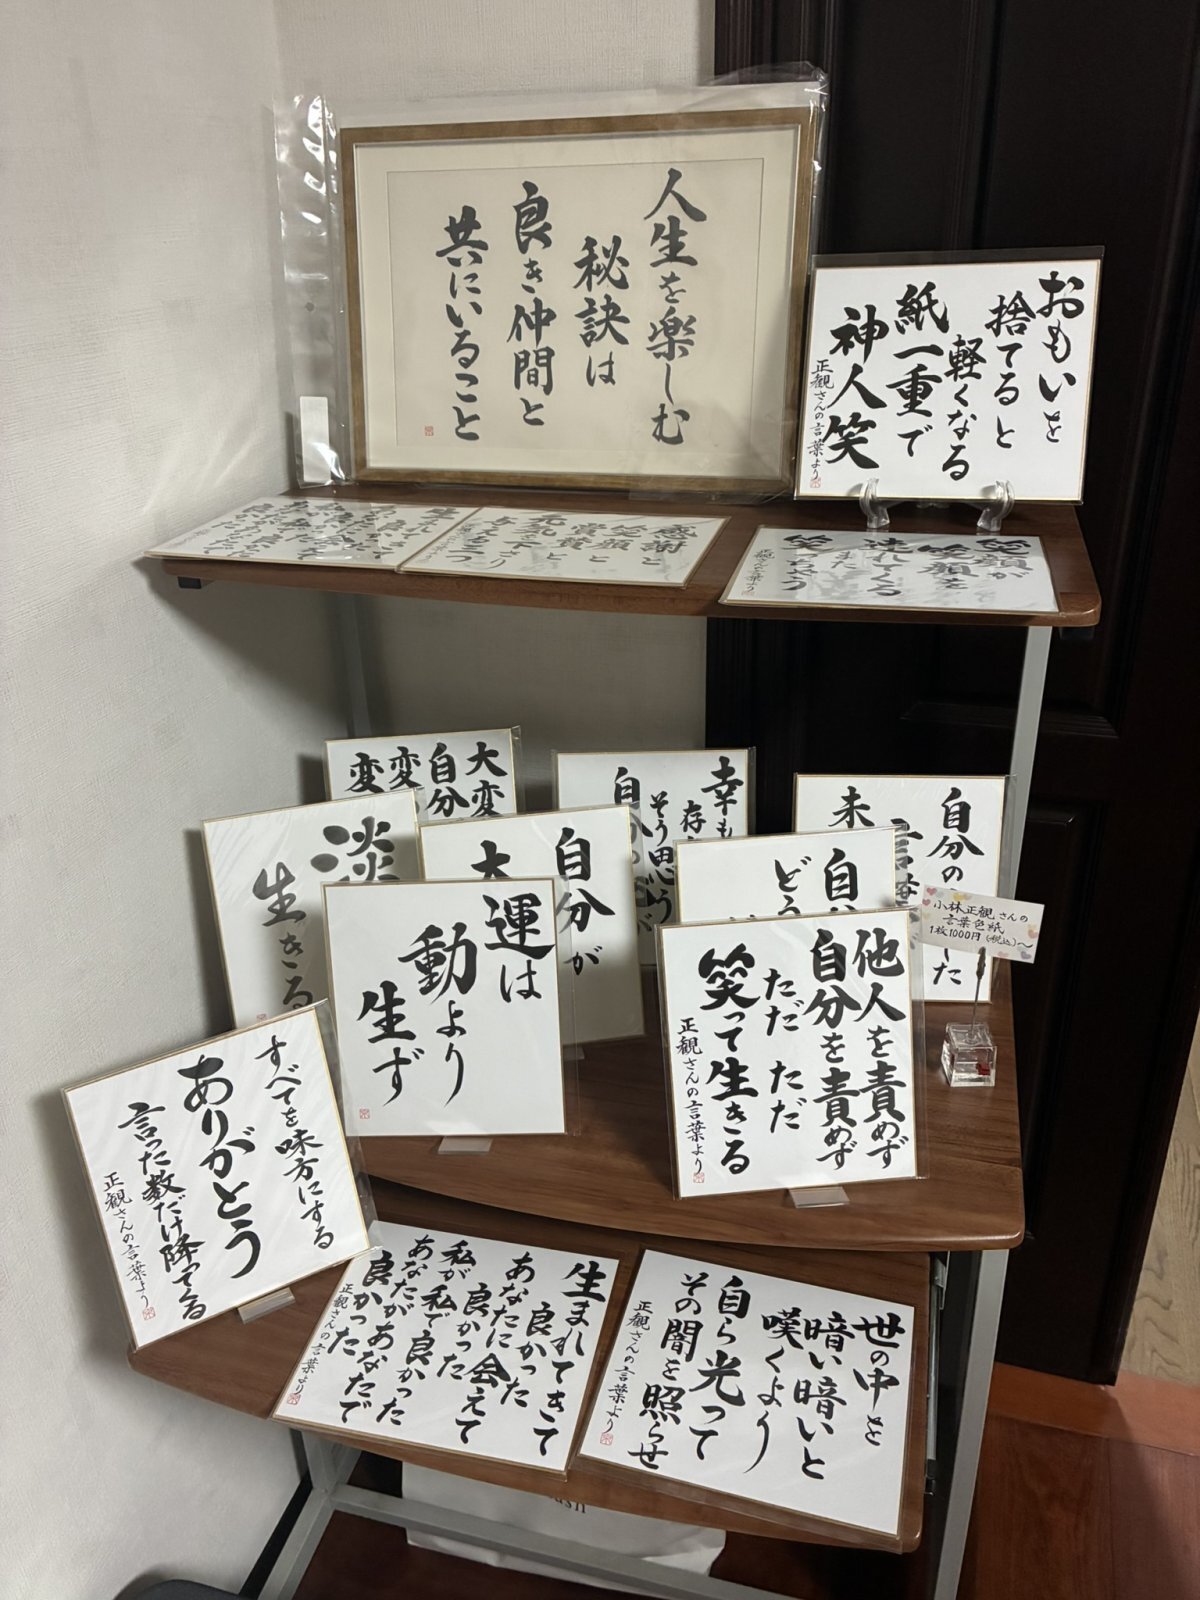 人生を楽しむ
秘訣は
良き仲間と
共にいること
おもいを
捨てると
軽くなる
紙一重で
神人笑
正観さんの言葉より
感謝と
笑顔と
賞賛と
笑顔が
笑顔を
連れてくる
また
笑っちゃう
正観さんの言葉より
大変
自分
変
変
幸も
存
そう思う
自分
自分の
言葉
未
した
淡
生きる
自分が
大
自
どう
小林正観さんの
言葉色紙
1枚1000円(税込)〜
運は
動より
生ず
他人を責めず
自分を責めず
ただ ただ
笑って生きる
正観さんの言葉より
すべてを味方にする
ありがとう
言った数だけ降ってくる
正観さんの言葉より
生まれてきて
良かった
あなたに会えて
良かった
私が私で良かった
あなたがあなたで
良かった
正観さんの言葉より
世の中を
暗い暗いと
嘆くよう
自ら光って
その闇を照らせ
正観さんの言葉より